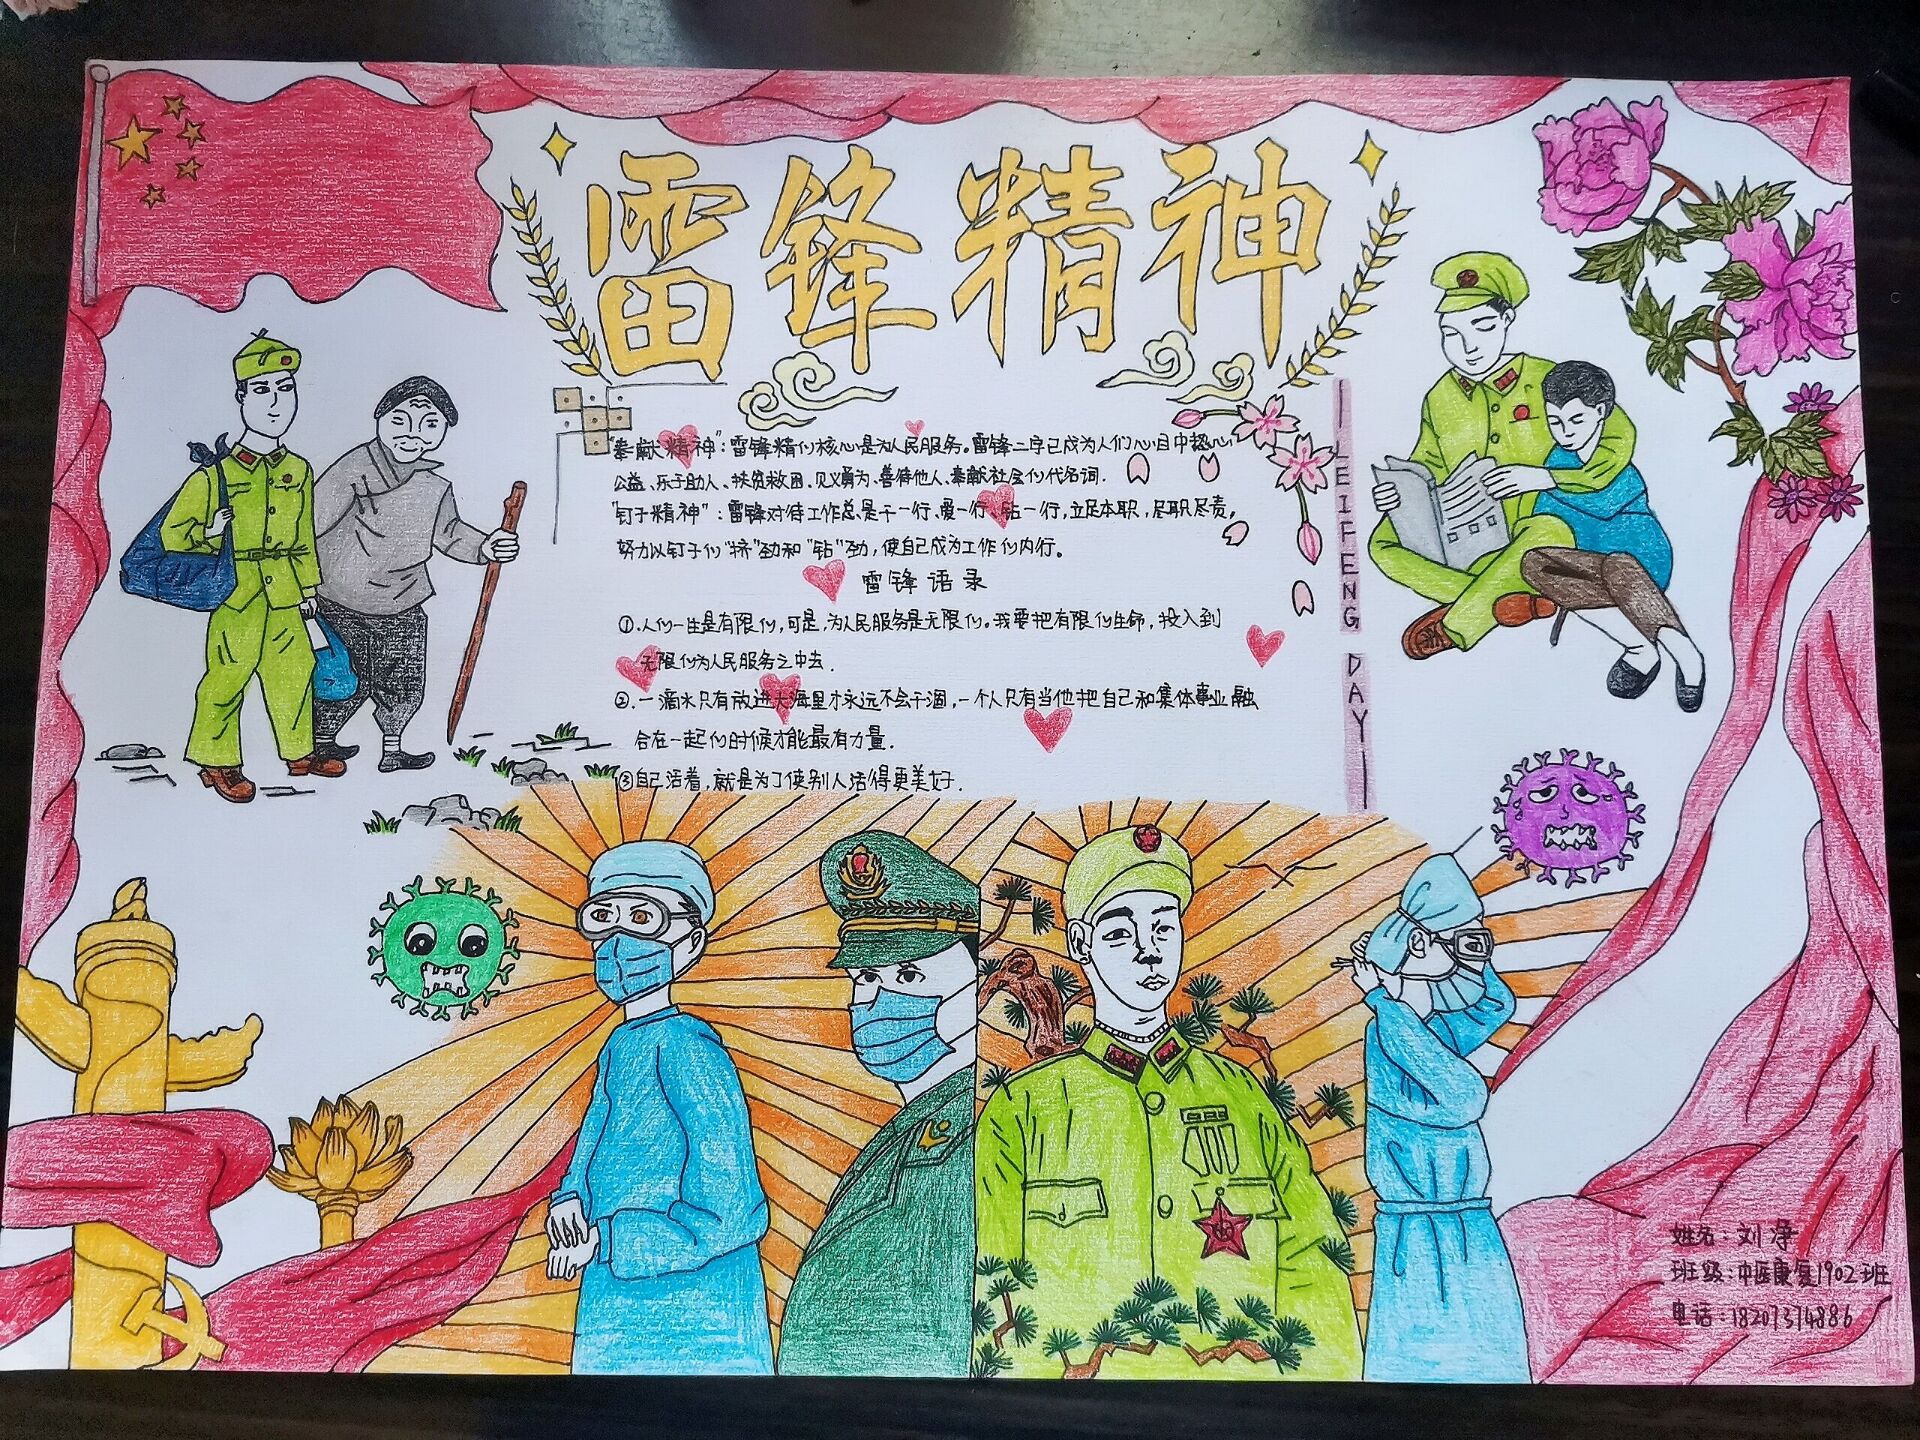 雷锋精神
"奉献精神"：雷锋精们核心是为人民服务。雷锋二字已成为人们心目中热心
公益、乐于助人、扶贫救困、见义勇为、善待他人、奉献社会们代名词.
"钉子精神"：雷锋对待工作总是干一行、爱一行、钻一行，立足本职，尽职尽责。
努力以钉子们"挤"劲和"钻"劲，使自己成为工作们内行。
雷锋语录
①.人们一生是有限们，可是，为人民服务是无限们。我要把有限们生命，投入到
无限们为人民服务之中去.
②.一滴水只有放进大海里才永远不会干涸，一个人只有当他把自己和集体事业融
合在一起们时候才能最有力量.
③自己活着，就是为了使别人活得更美好.
LEIFENG DAY
姓名：刘净
班级：中医康复1902班
电话：18207374886